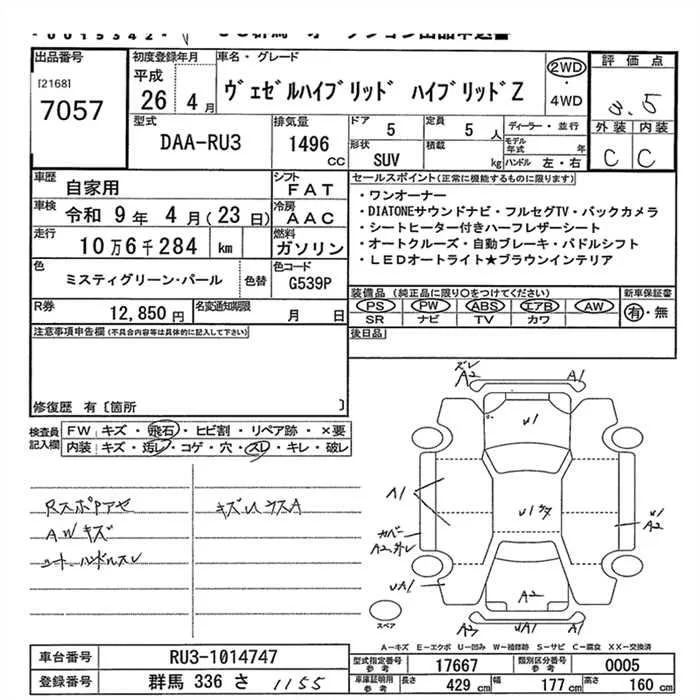 出品番号
[2168]
7057
初度登録年月
平成
26 4月
車名・グレード
ヴェゼルハイブリッド ハイブリッドZ
2WD
・
4WD
評価点
3.5
外装 内装
C C
型式
DAA-RU3
排気量
1496
CC
ドア
5
定員
5人
ディーラー・並行
形状
SUV
積載
kg
モデル年式 年
ハンドル 左・右
車歴
自家用
シフト
FAT
車検
令和 9年 4月(23日)
冷房
AAC
走行
10万6千284 km
燃料
ガソリン
色
ミスティグリーン・パール
色替
色コード
G539P
R券
12,850円
名変通知期限
月 日
セールスポイント(正常に機能するものに限ります)
・ワンオーナー
・DIATONEサウンドナビ・フルセグTV・バックカメラ
・シートヒーター付きハーフレザーシート
・オートクルーズ・自動ブレーキ・パドルシフト
・LEDオートライト★ブラウンインテリア
装備品(純正品に限り○をつけてください)
新車保証書
PS PW ABS エアB AW
SR ナビ TV カワ
有・無
後日品
注意事項申告欄(不具合内容等は具体的に記入して下さい)
修復歴 有〔箇所 〕
検査員記入欄
FW キズ・飛石・ヒビ割・リペア跡・×要
内装 キズ・汚レ・コゲ・穴・スレ・キレ・破レ
Rスポアセ
AWキズ
シート、ハンドルスレ
キズUウスA
ズレ
A2 A1
U1
A1
カバー
A2、外レ
U1
A2
UA1
A2
U A1
スペア
A―キズ E―エクボ U―凹み W―補修跡 S―サビ C―腐食 XX―交換済
車台番号
RU3-1014747
登録番号
群馬 336 さ 1155
型式指定番号
参考
17667
類別区分番号
参考
0005
車庫証明用
参考
長さ
429 cm
幅
177 cm
高さ
160 cm